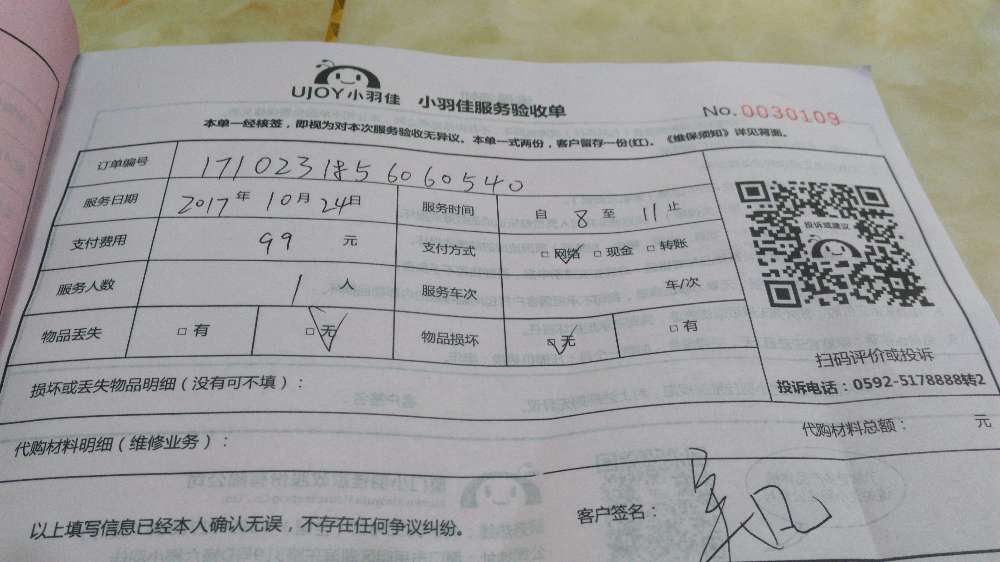 UJOY小羽佳 小羽佳服务验收单
No.0030109
本单一经核签，即视为对本次服务验收无异议。本单一式两份，客户留存一份(红)。《维保须知》详见背面。
订单编号 171023185606 0540
服务日期 2017年10月24日 服务时间 自8至11止
投诉或建议
支付费用 99 元 支付方式 □网络 □现金 □转账
服务人数 1 人 服务车次 车/次
物品丢失 □有 □无 物品损坏 □无 □有
扫码评价或投诉
投诉电话：0592-5178888转2
损坏或丢失物品明细（没有可不填）：
代购材料明细（维修业务）： 代购材料总额： 元
以上填写信息已经本人确认无误，不存在任何争议纠纷。 客户签名：